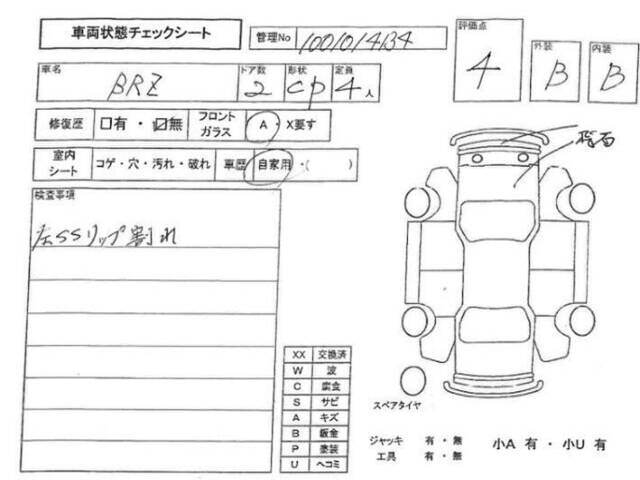 車両状態チェックシート
管理No 1001014134
評価点 4
外装 B
内装 B
車名 BRZ
ドア数 2
形状 CP
定員 4人
修復歴 □有・☑無
フロントガラス A・X要す
室内シート コゲ・穴・汚れ・破れ
車歴 自家用・( )
検査事項
左SSリップ割れ
飛石
XX 交換済
W 波
C 腐食
S サビ
A キズ
B 鈑金
P 塗装
U ヘコミ
スペアタイヤ
ジャッキ 有・無
工具 有・無
小A 有・小U 有